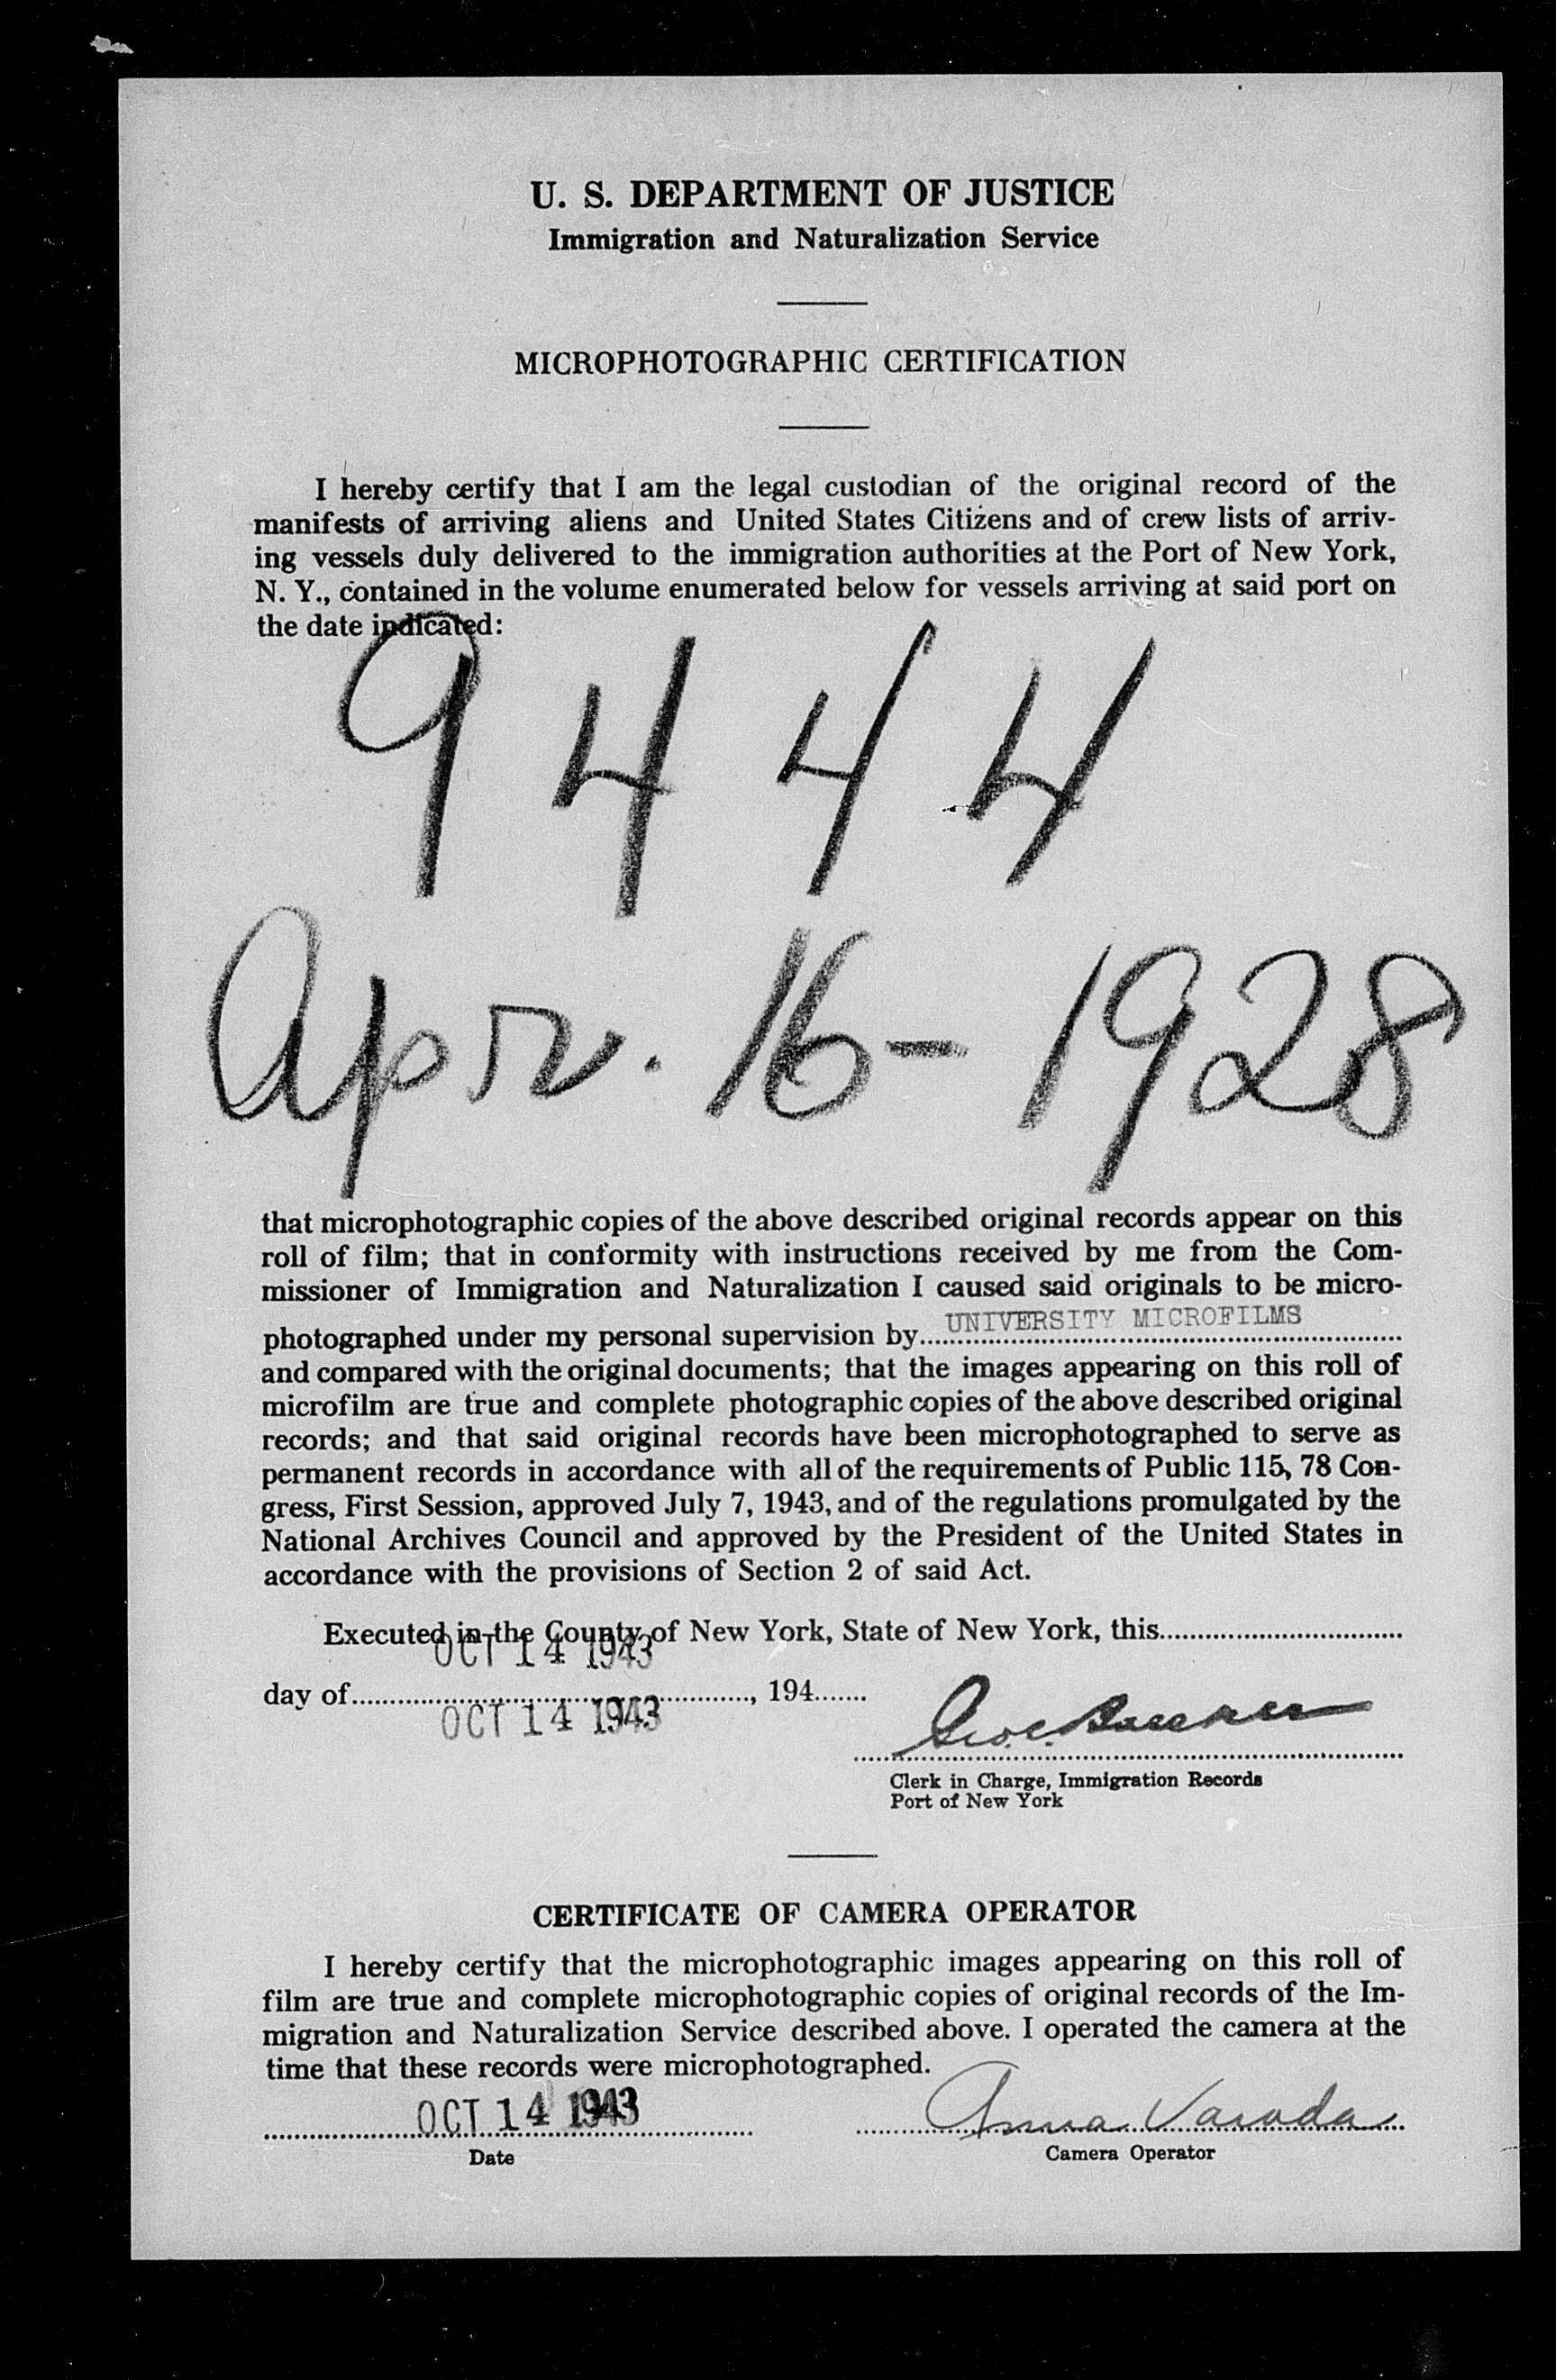 U. S. DEPARTMENT OF JUSTICE
Immigration and Naturalization Service
MICROPHOTOGRAPHIC CERTIFICATION
I hereby certify that I am the legal custodian of the original record of the
manifests of arriving aliens and United States Citizens and of crew lists of arriv-
ing vessels duly delivered to the immigration authorities at the Port of New York,
N. Y., contained in the volume enumerated below for vessels arriving at said port on
the date indicated:
9444
Apr. 16-1928
that microphotographic copies of the above described original records appear on this
roll of film; that in conformity with instructions received by me from the Com-
missioner of Immigration and Naturalization I caused said originals to be micro-
photographed under my personal supervision by UNIVERSITY MICROFILMS
and compared with the original documents; that the images appearing on this roll of
microfilm are true and complete photographic copies of the above described original
records; and that said original records have been microphotographed to serve as
permanent records in accordance with all of the requirements of Public 115, 78 Con-
gress, First Session, approved July 7, 1943, and of the regulations promulgated by the
National Archives Council and approved by the President of the United States in
accordance with the provisions of Section 2 of said Act.
Executed in the County of New York, State of New York, this
OCT 14 1943
day of , 194
OCT 14 1943
Clerk in Charge, Immigration Records
Port of New York
CERTIFICATE OF CAMERA OPERATOR
I hereby certify that the microphotographic images appearing on this roll of
film are true and complete microphotographic copies of original records of the Im-
migration and Naturalization Service described above. I operated the camera at the
time that these records were microphotographed.
OCT 14 1943 Anna Varada
Date Camera Operator